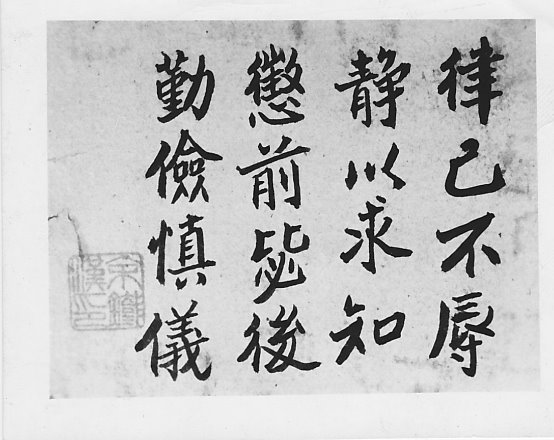 律己不辱
静以求知
懲前毖後
勤儉慎儀